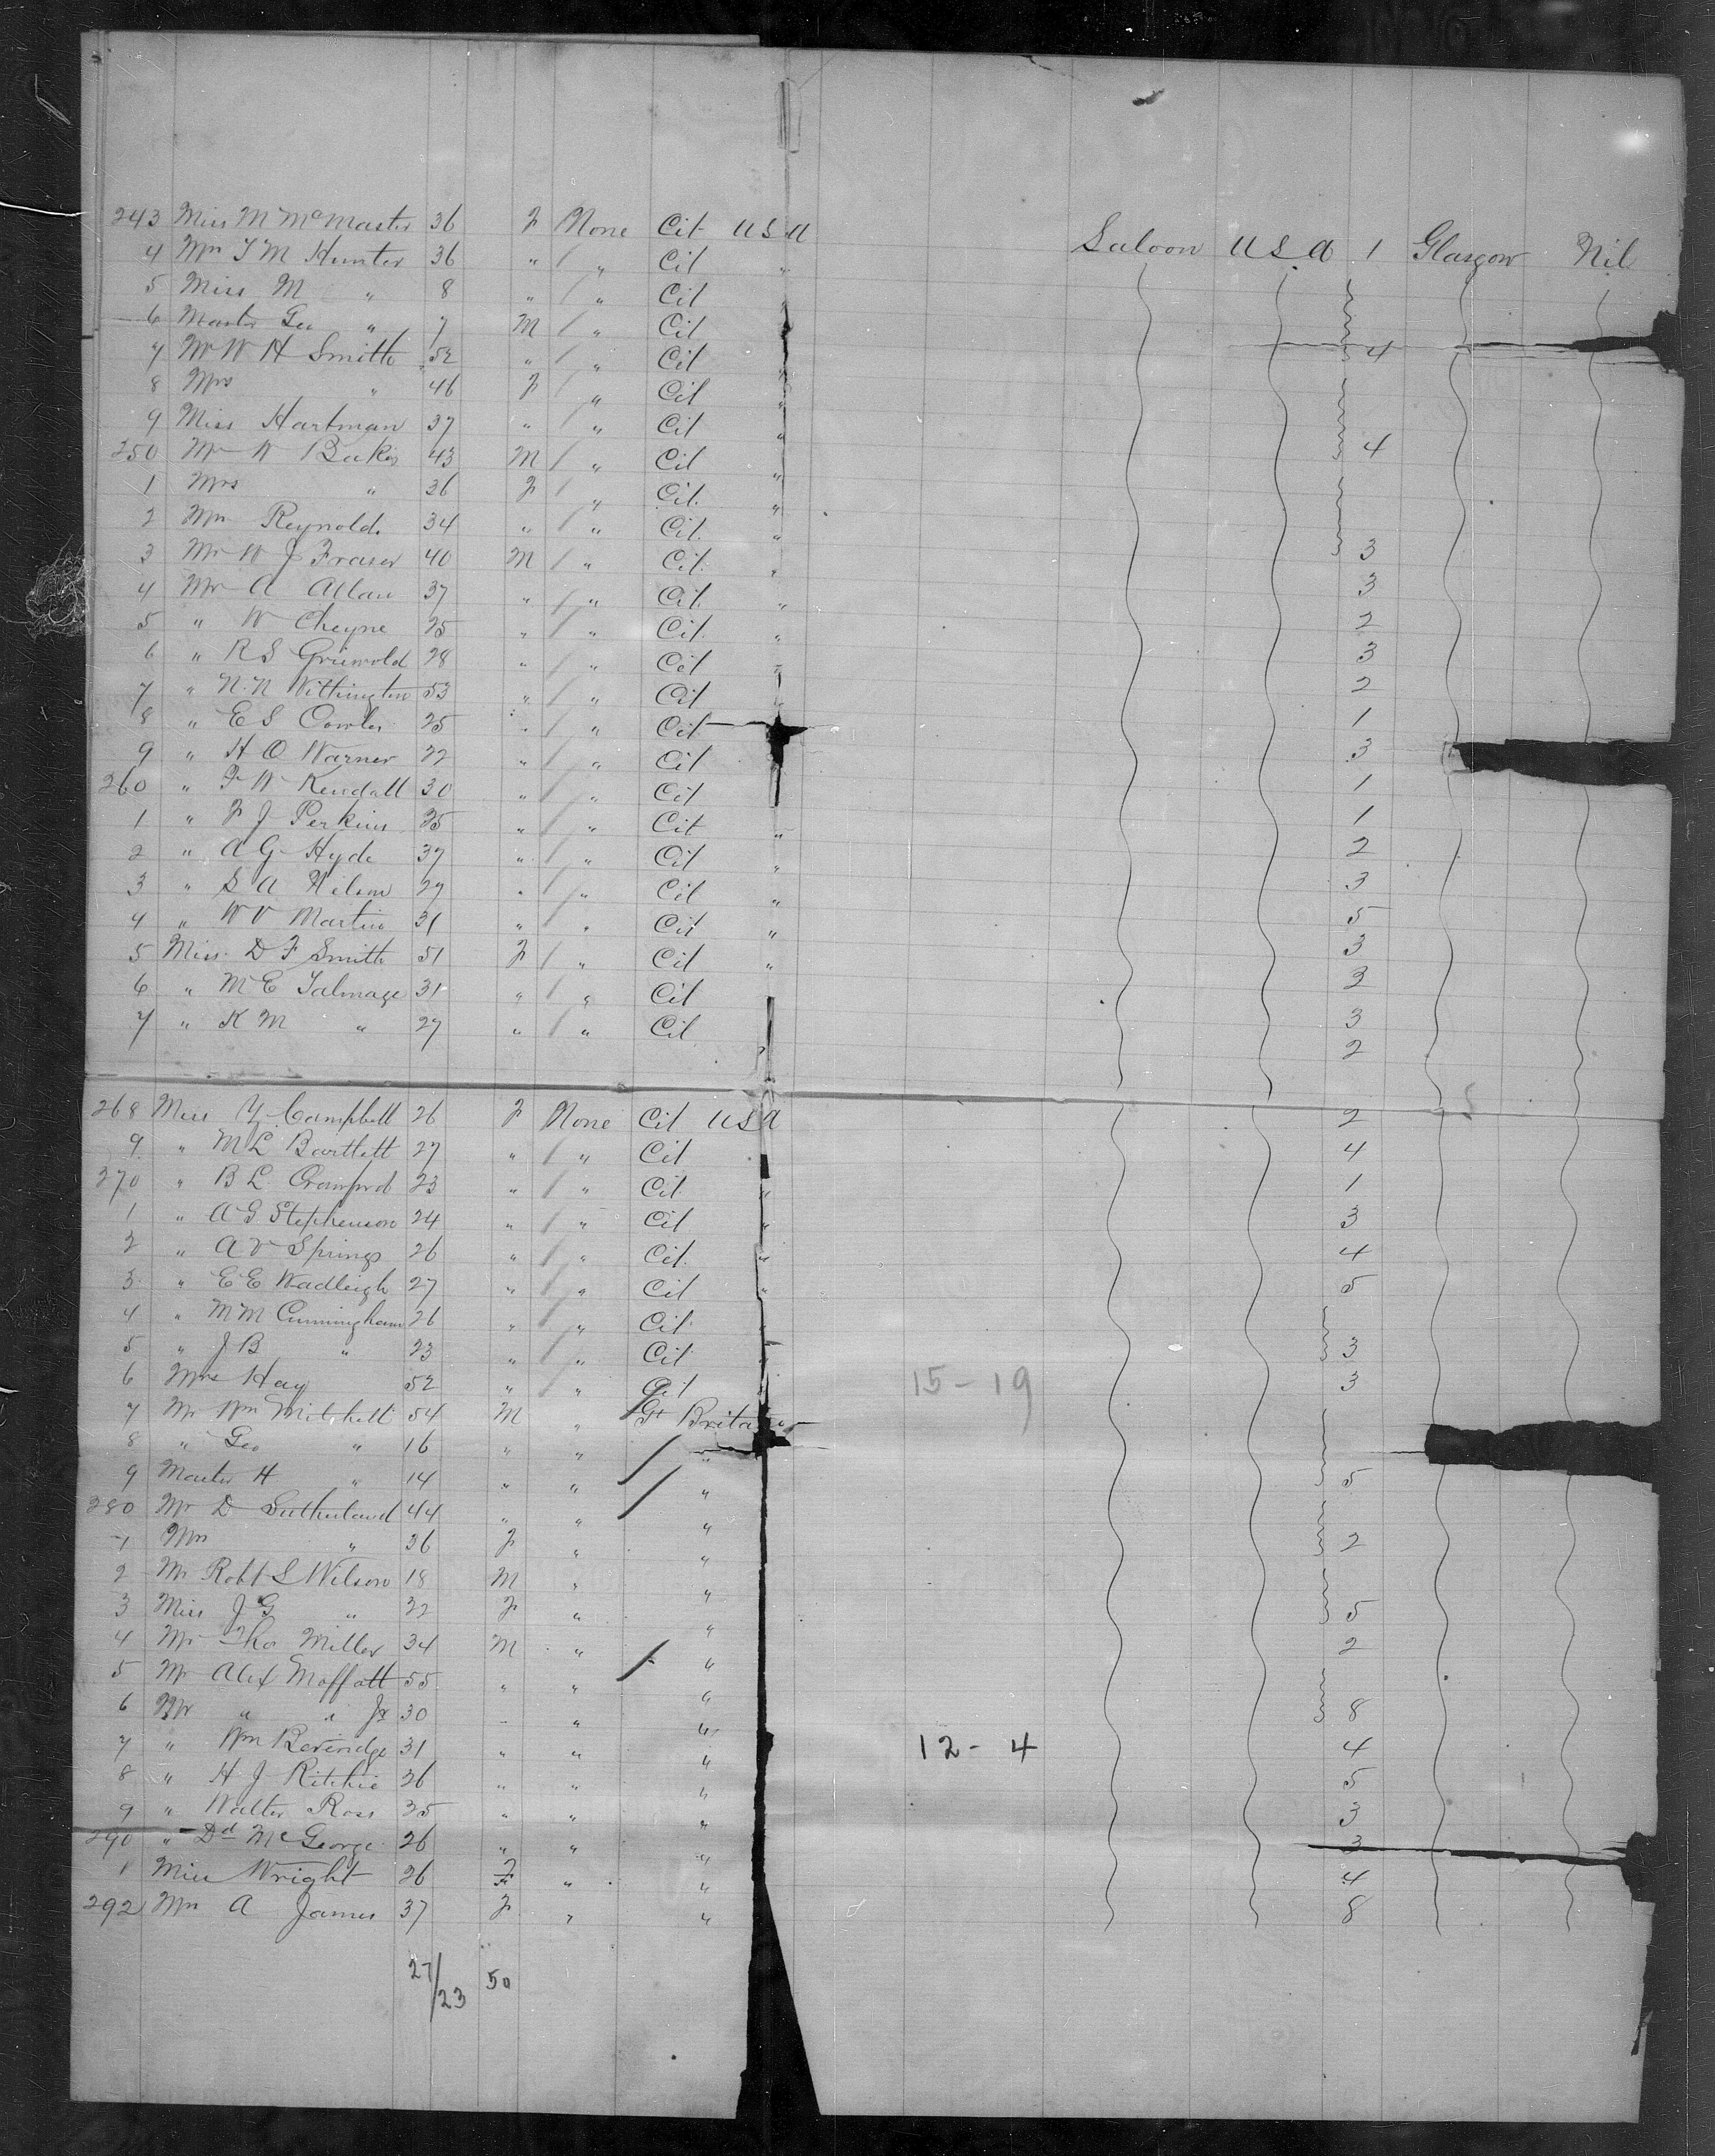 243 Miss M McMaster 36 F None Cit USA Saloon USA 1 Glasgow Nil
4 Mrs T M Hunter 36 " " Cit "
5 Miss M " 8 " " Cit "
6 Master Geo " 7 M " Cit "
7 Mr W H Smith 52 " " Cit " 4
8 Mrs " 46 F " Cit "
9 Miss Hartman 37 " " Cit "
250 Mr W Baker 43 M " Cit " 4
1 Mrs " 36 F " Cit. "
2 Mrs Reynolds 34 " " Cit. "
3 Mr W J Fraser 40 M " Cit. " 3
4 Mr A Allan 37 " " Cit. " 3
5 " W Cheyne 25 " " Cit. " 2
6 " R S Griswold 28 " " Cit " 3
7 " N. N Withington 53 " " Cit " 2
8 " E S Cowles 25 " " Cit 1
9 " H O Warner 22 " " Cit 3
260 " F W Kendall 30 " " Cit 1
1 " F J Perkins 35 " " Cit " 1
2 " A G Hyde 37 " " Cit " 2
3 " S A Wilson 29 " " Cit " 3
4 " W V Martin 31 " " Cit " 5
5 Miss D F Smith 51 F " Cit " 3
6 " M E Talmage 31 " " Cit 3
7 " K M " 27 " " Cit 3
2
268 Miss Y Campbell 26 F None Cit USA 2
9 " M L Bartlett 27 " " Cit 4
270 " B L Crawford 23 " " Cit " 1
1 " A G Stephenson 24 " " Cit " 3
2 " A V Springs 26 " " Cit. " 4
3 " E E Wadleigh 27 " " Cit " 5
4 " M M Cunningham 26 " " Cit "
5 " J B " 23 " " Cit " 3
6 Mrs Hay 52 " " Cit 15-19 3
7 Mr Wm Mitchell 54 M " Gt Britain
8 " Geo " 16 " " "
9 Master H " 14 " " " 5
280 Mr D Sutherland 44 " " "
1 Mrs " 36 F " " 2
2 Mr Robt S Wilson 18 M " "
3 Miss J G " 22 F " " 5
4 Mr Thos Miller 34 M " " 2
5 Mr Alex Moffatt 55 " " "
6 Mr " " Jr 30 " " " 8
7 " Wm Beveridge 31 " " " 12-4 4
8 " H J Ritchie 36 " " " 5
9 " Walter Ross 35 " " " 3
290 " Dd McGeorge 26 " " " 3
1 Miss Wright 26 F " " 4
292 Mrs A James 37 F " " 8
27/23 50